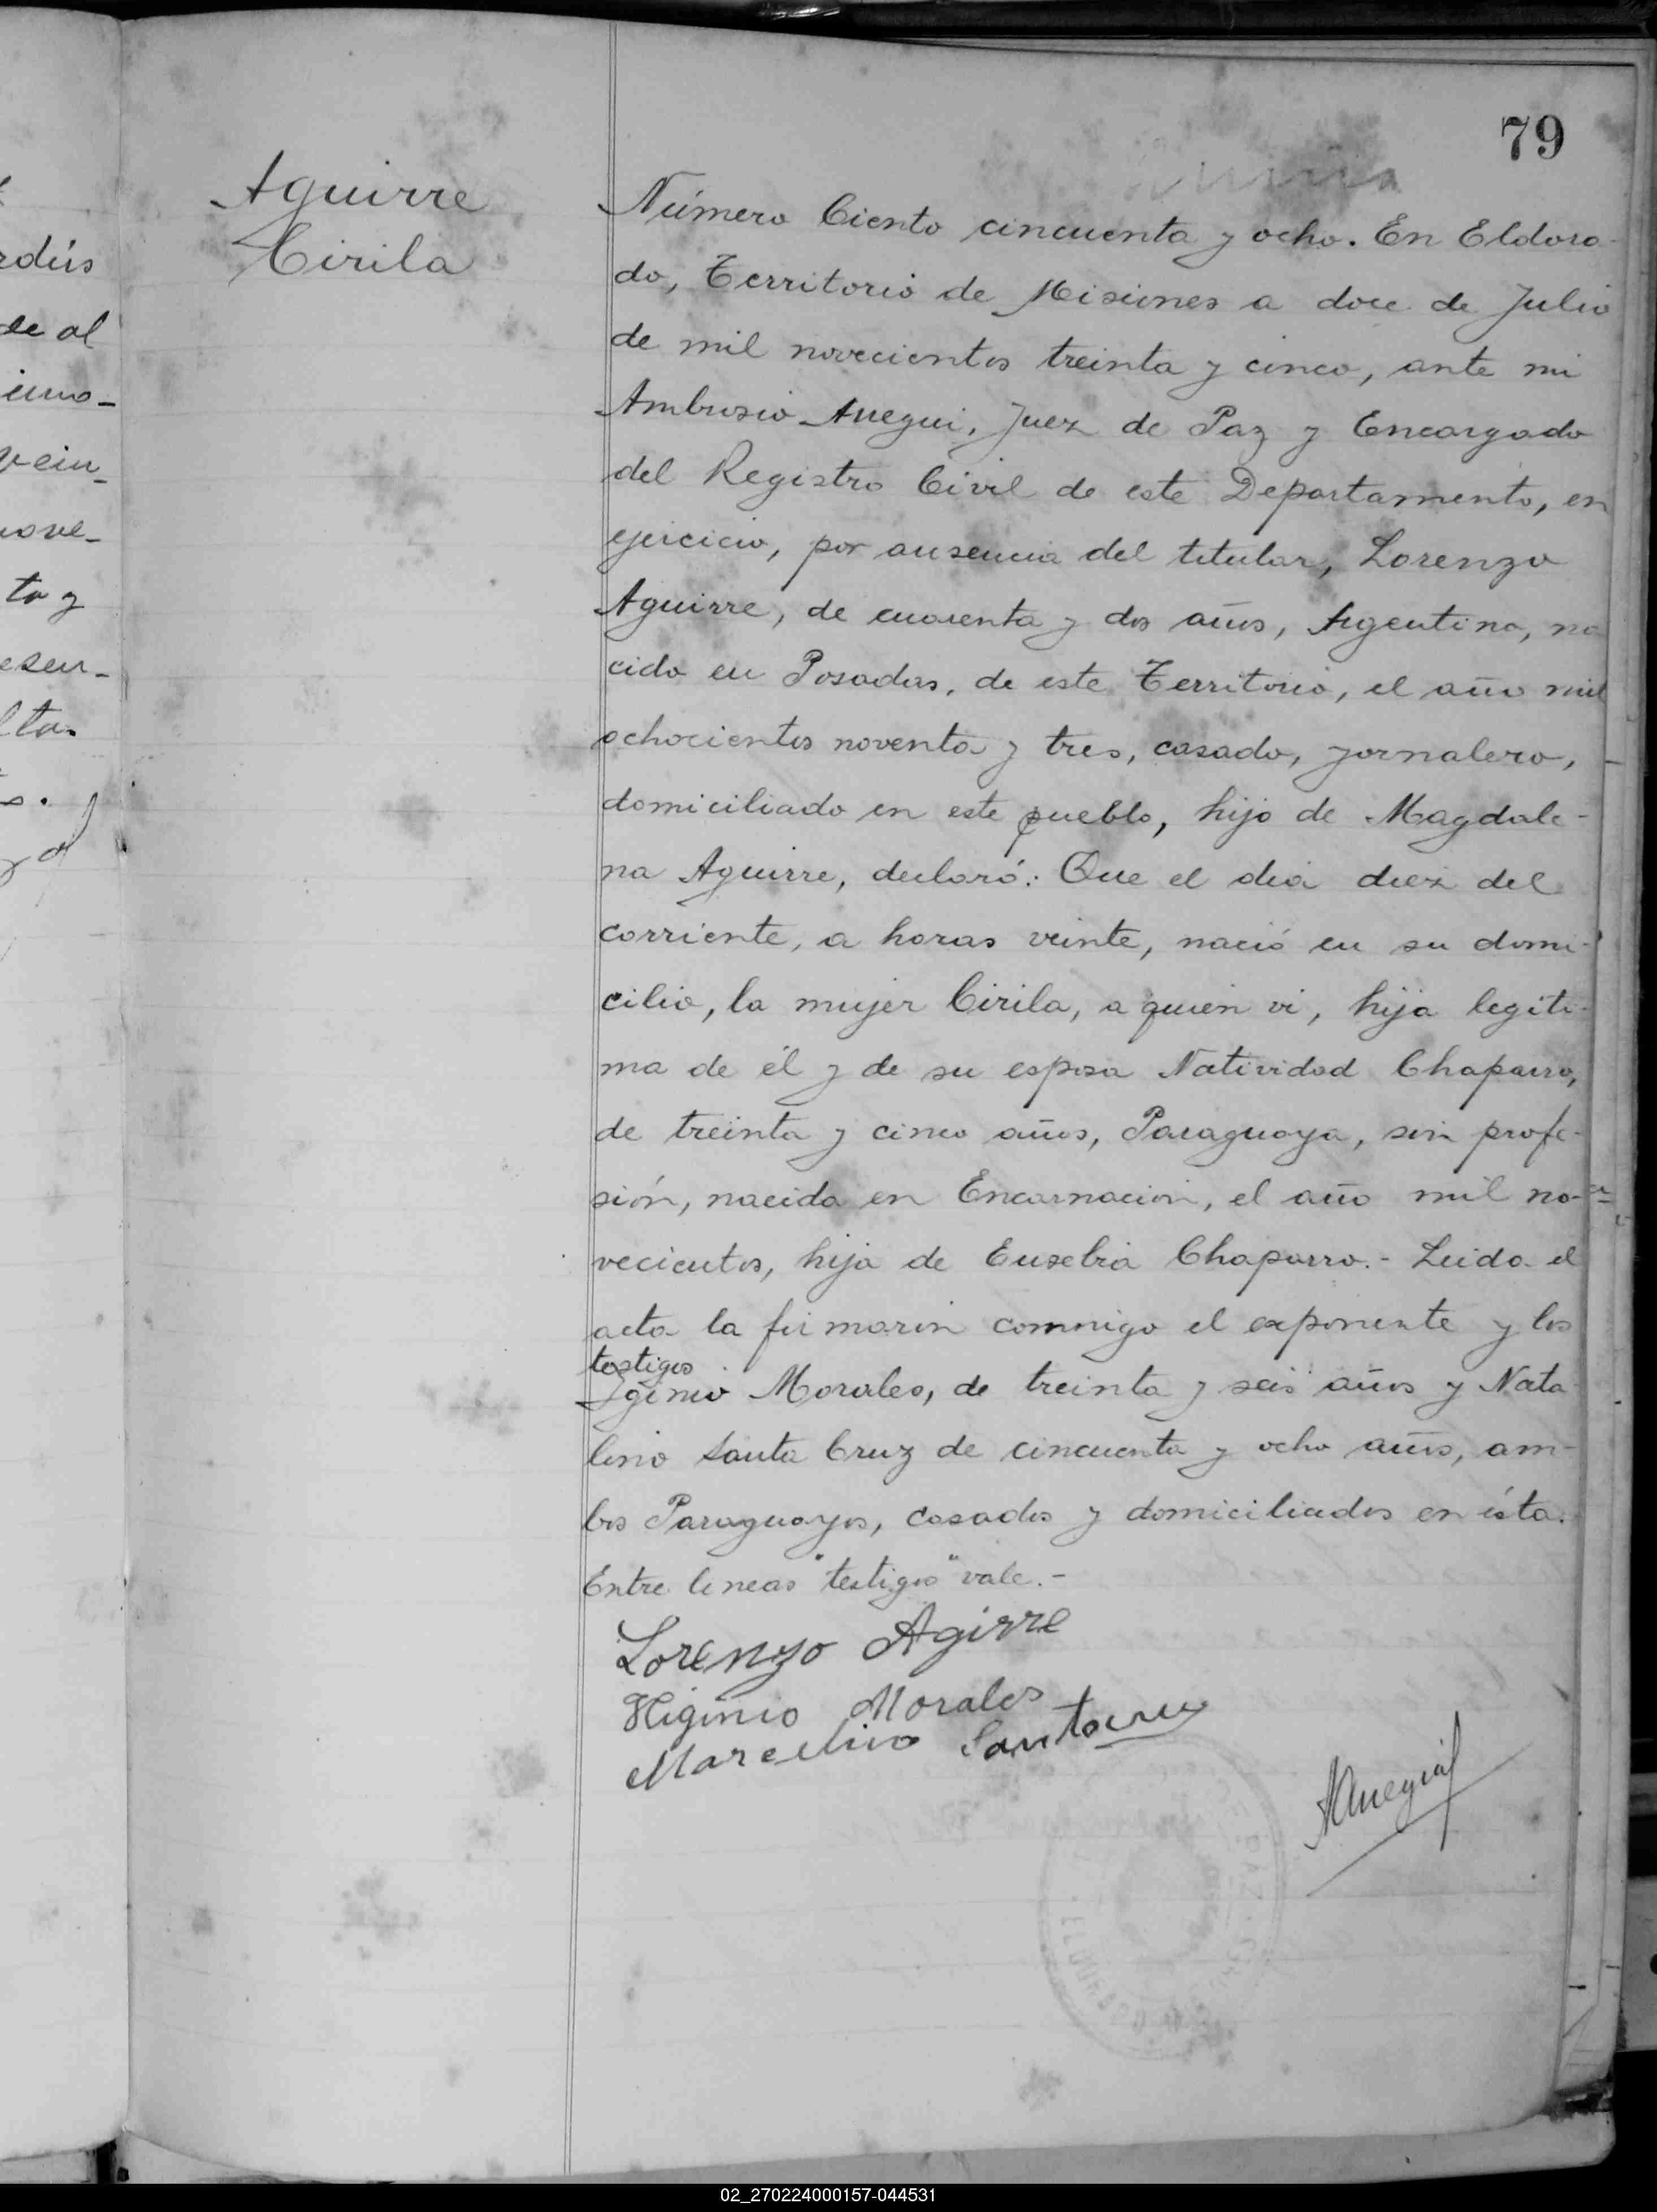 79
Aguirre
Cirila
Número Ciento cincuenta y ocho. En Eldora-
do, Territorio de Misiones a doce de Julio
de mil novecientos treinta y cinco, ante mi
Ambrosio Anegui, Juez de Paz y Encargado
del Registro Civil de este Departamento, en
ejercicio, por ausencia del titular, Lorenzo
Aguirre, de cuarenta y dos años, Argentino, na
cido en Posadas, de este Territorio, el año mil
ochocientos noventa y tres, casado, jornalero,
domiciliado en este pueblo, hijo de Magdale-
na Aguirre, declaró: Que el dia diez del
corriente, a horas veinte, nació en su domi-
cilio, la mujer Cirila, a quien vi, hija legíti-
ma de él y de su esposa Natividad Chaparro,
de treinta y cinco años, Paraguaya, sin profe-
sión, nacida en Encarnación, el año mil no-
vecientos, hija de Eusebia Chaparro.- Leida el
acta la firmarón commigo el exponente y los
testigos
Iginio Morales, de treinta y seis años y Nata
lino Santa Cruz de cincuenta y ocho años, am-
bos Paraguayos, casados y domiciliados en ésta.
Entre lineas "testigos" vale.-
Lorenzo Agirre
Higinio Morales
Marcelino Santacru
AAnegui
rdús
de al
ove-
to y
esen-
lta.
02_270224000157-044531